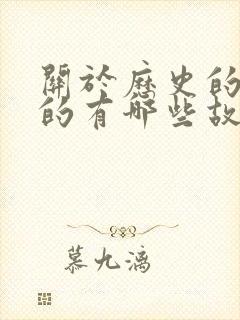 關於歷史的
的有哪些故
慕九漓